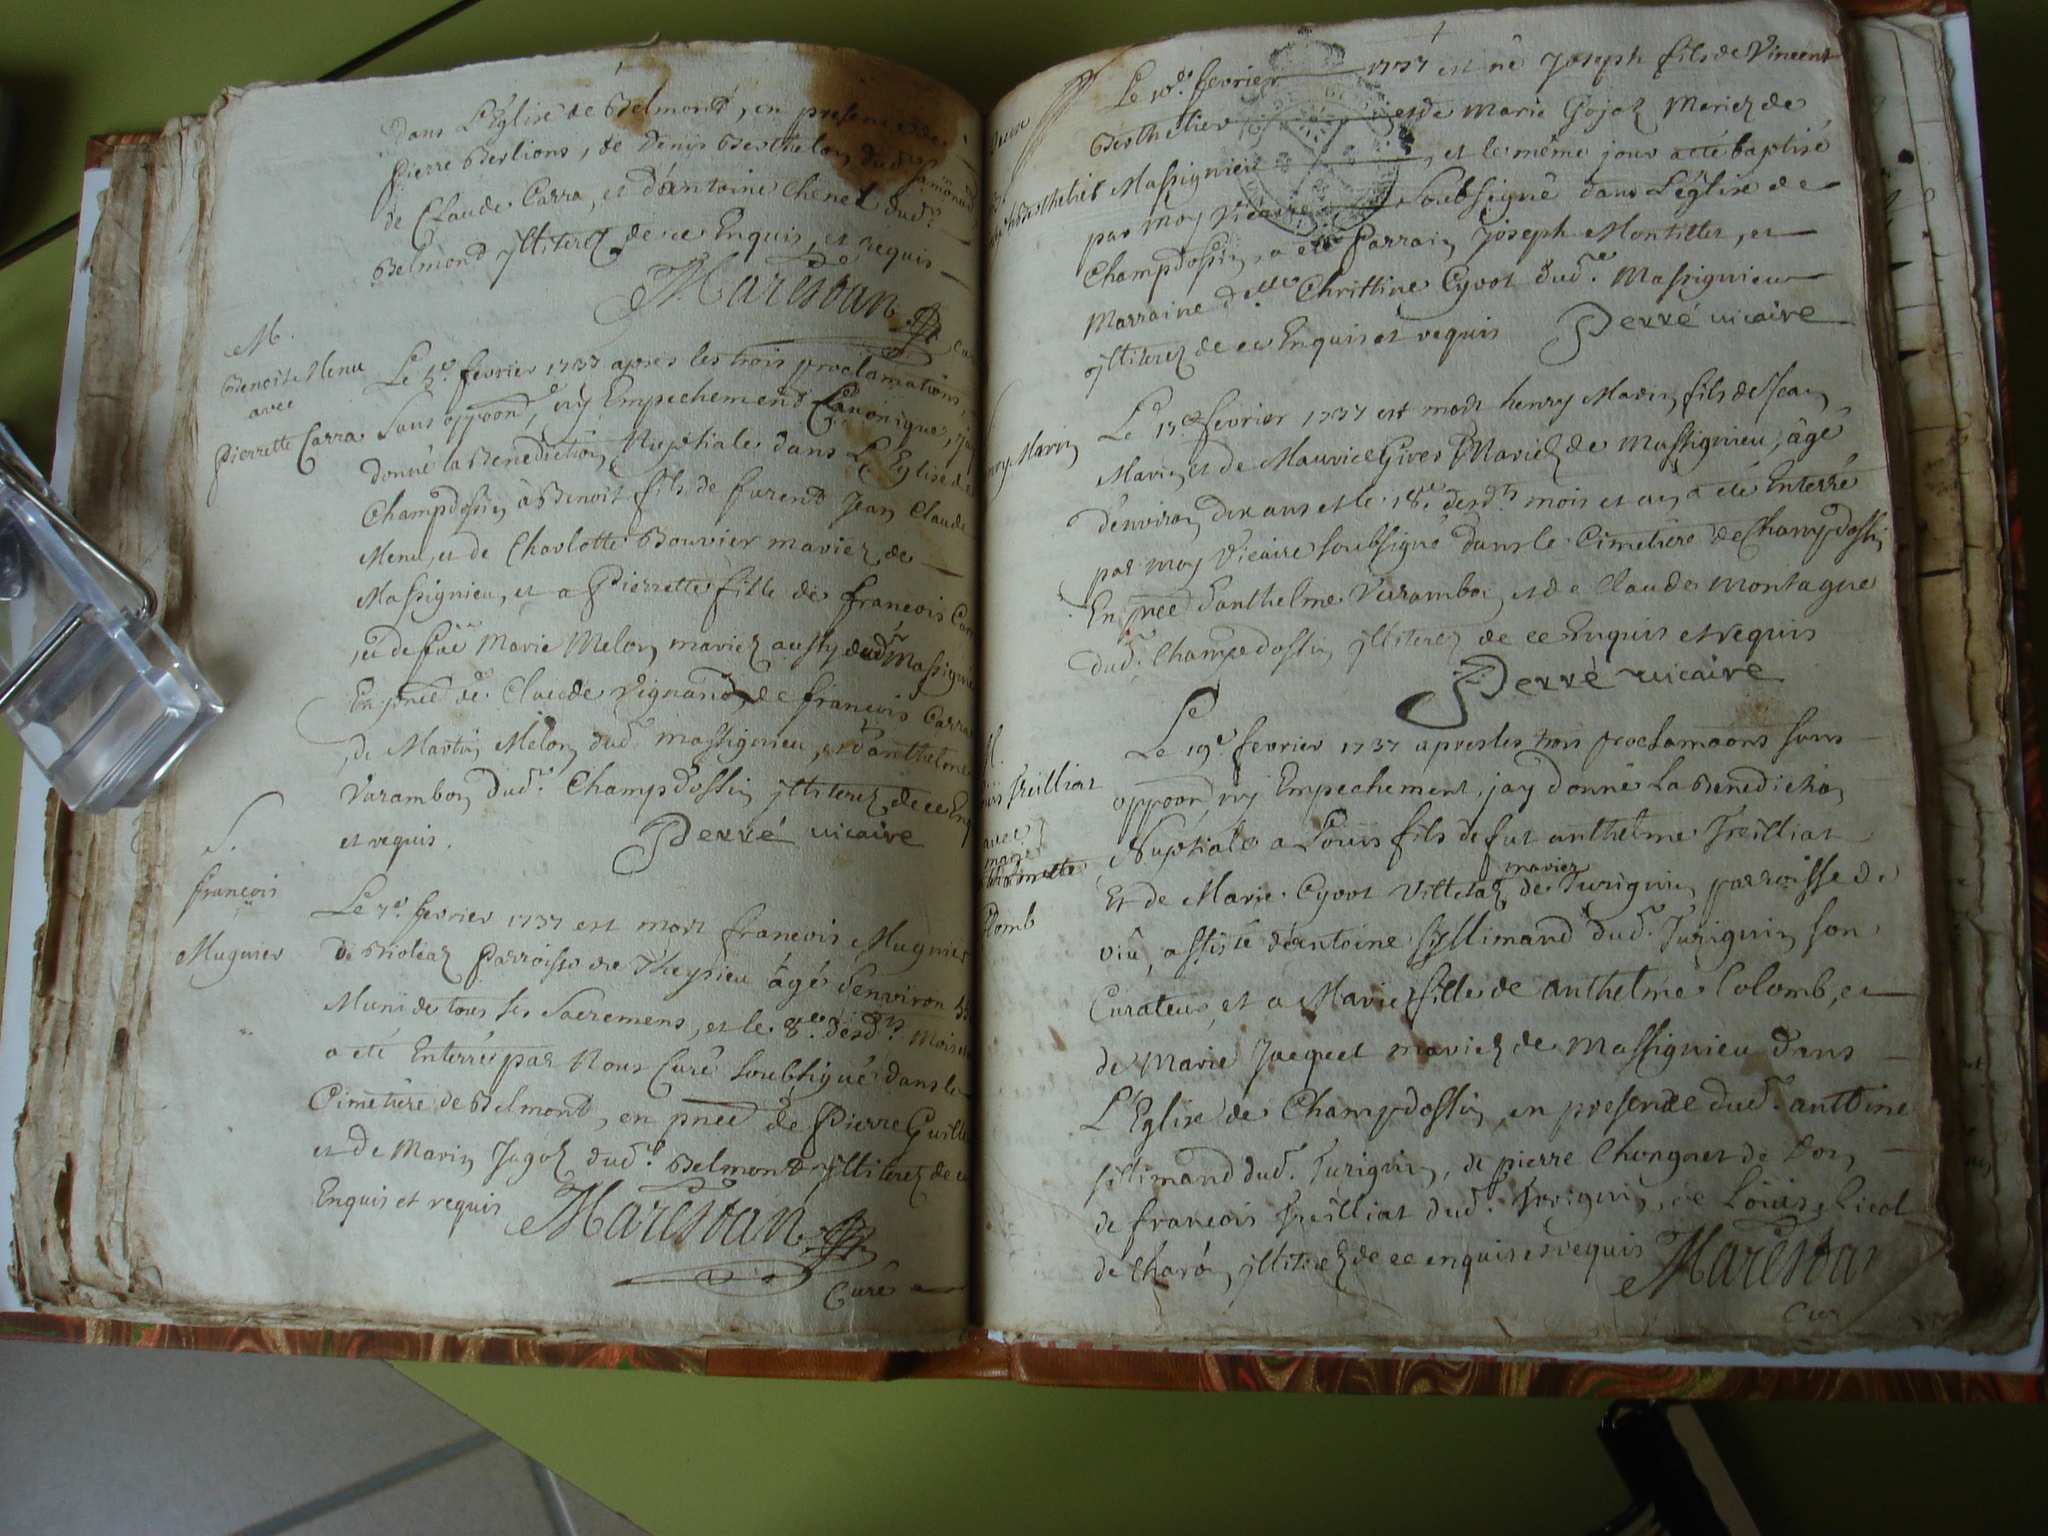 dans L'Eglise de Belmont, en presence de
pierre Berlions, de Denis Berthelon dud.
de Claude Carra, et d'antoine Chenet dud.
Belmond jlliterez de ce Enquis, et requis
Marestan
M.
Benoit Menu
avec
Pierrette Carra
Le 5e. fevrier 1737 apres les trois proclamations,
Sans oppoon, ny Empechement Canonique, jay
donné la Benediction Nuptiale dans L'Eglise de
Champdossin à Benoit fils de furent Jean Claude
Menu, et de Charlotte Bouvier mariez de
Massignieu, et a Pierrette fille de francois Carra
et de füe Marie Melon mariez aussy dud. Massignieu
En pnce de Claude Vignand, de francois Carra
de Martin Melon dud. massignieu, et d'anthelme
Varambon dud. Champdossin jlliterez de ce Enq
et requis.
Derré vicaire
S.
françois
Mugnier
Le 7e. fevrier 1737 est mort francois Mugnier
de Bioleaz Parroisse de Theysieu âgé d'environ
Muni de tous ses Sacremens, et le 8e. desdts. mois et
a eté Enterré par Nous Curé soubsigné dans le
Cimetiere de Belmont, en pnce de Pierre Guille
et de Marin Jagoz dud. Belmont jlliterez de ce
Enquis et requis
Marestan
Curé
Le 10e. fevrier 1737 est né Joseph fils de Vincent
Berthelier et de Marie Gojoz Mariez de
Berthelier
Massignieu, et le même jour a eté baptisé
par moy Vicaire Soubsigné dans L'église de
Champdossin, a eté Parrain Joseph Montillet, et
Marraine delle. Christine Cyvot dud. Massignieu
jlliterez de ce Enquis et requis Derré vicaire
Marin
Le 17e. fevrier 1737 est mort henry Marin fils de Jean
Marin et de Maurice Giver Mariez de Massignieu, âgé
d'environ dix ans et le 18e. desdts. mois et an a eté Enterré
par moy Vicaire soubsigné dans le Cimetiere de Champdossin
En pnce d'anthelme Varambon et de Claude Montagne
dud. Champdossin jlliterez de ce Enquis et requis
Derré vicaire
M.
Treilliat
avec
marie
Colomb
Le 19e. fevrier 1737 apres les trois proclamaons sans
oppoon, ny Empechement, jay donné La Benediction
Nuptiale a Louis fils de fut anthelme Treilliat
mariez
Et de Marie Cyvot Villetaz de Jurignin parroisse de
assisté d'antoine Sillimand dud. Jurignin son
Curateur, et a Marie fille de anthelme Colomb, et
de Marie Jacquet mariez de Massignieu dans
L'Eglise de Champdossin en presence dud. antoine
sillimand dud. Jurignin, de pierre Chongnet de Don
de francois Treilliat dud. Jurignin, de Louis Nicol
de Charon jlliterez de ce enquis et requis Marestan
Cur